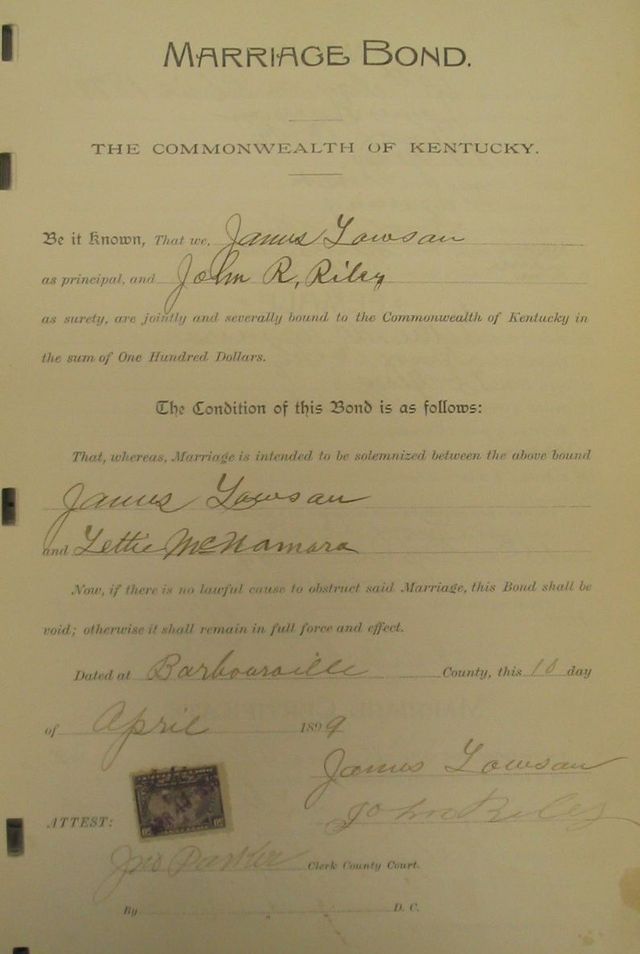 MARRIAGE BOND.
THE COMMONWEALTH OF KENTUCKY.
Be it known, That we, James Lowsan
as principal, and John R, Riley
as surety, are jointly and severally bound to the Commonwealth of Kentucky in
the sum of One Hundred Dollars.
The Condition of this Bond is as follows:
That, whereas, Marriage is intended to be solemnized between the above bound
James Lowsan
and Lettie McNamara
Now, if there is no lawful cause to obstruct said Marriage, this Bond shall be
void; otherwise it shall remain in full force and effect.
Dated at Barbourville County, this 10 day
of April 1899
James Lowsan
John Riley
ATTEST:
Jno Parker Clerk County Court.
By D. C.